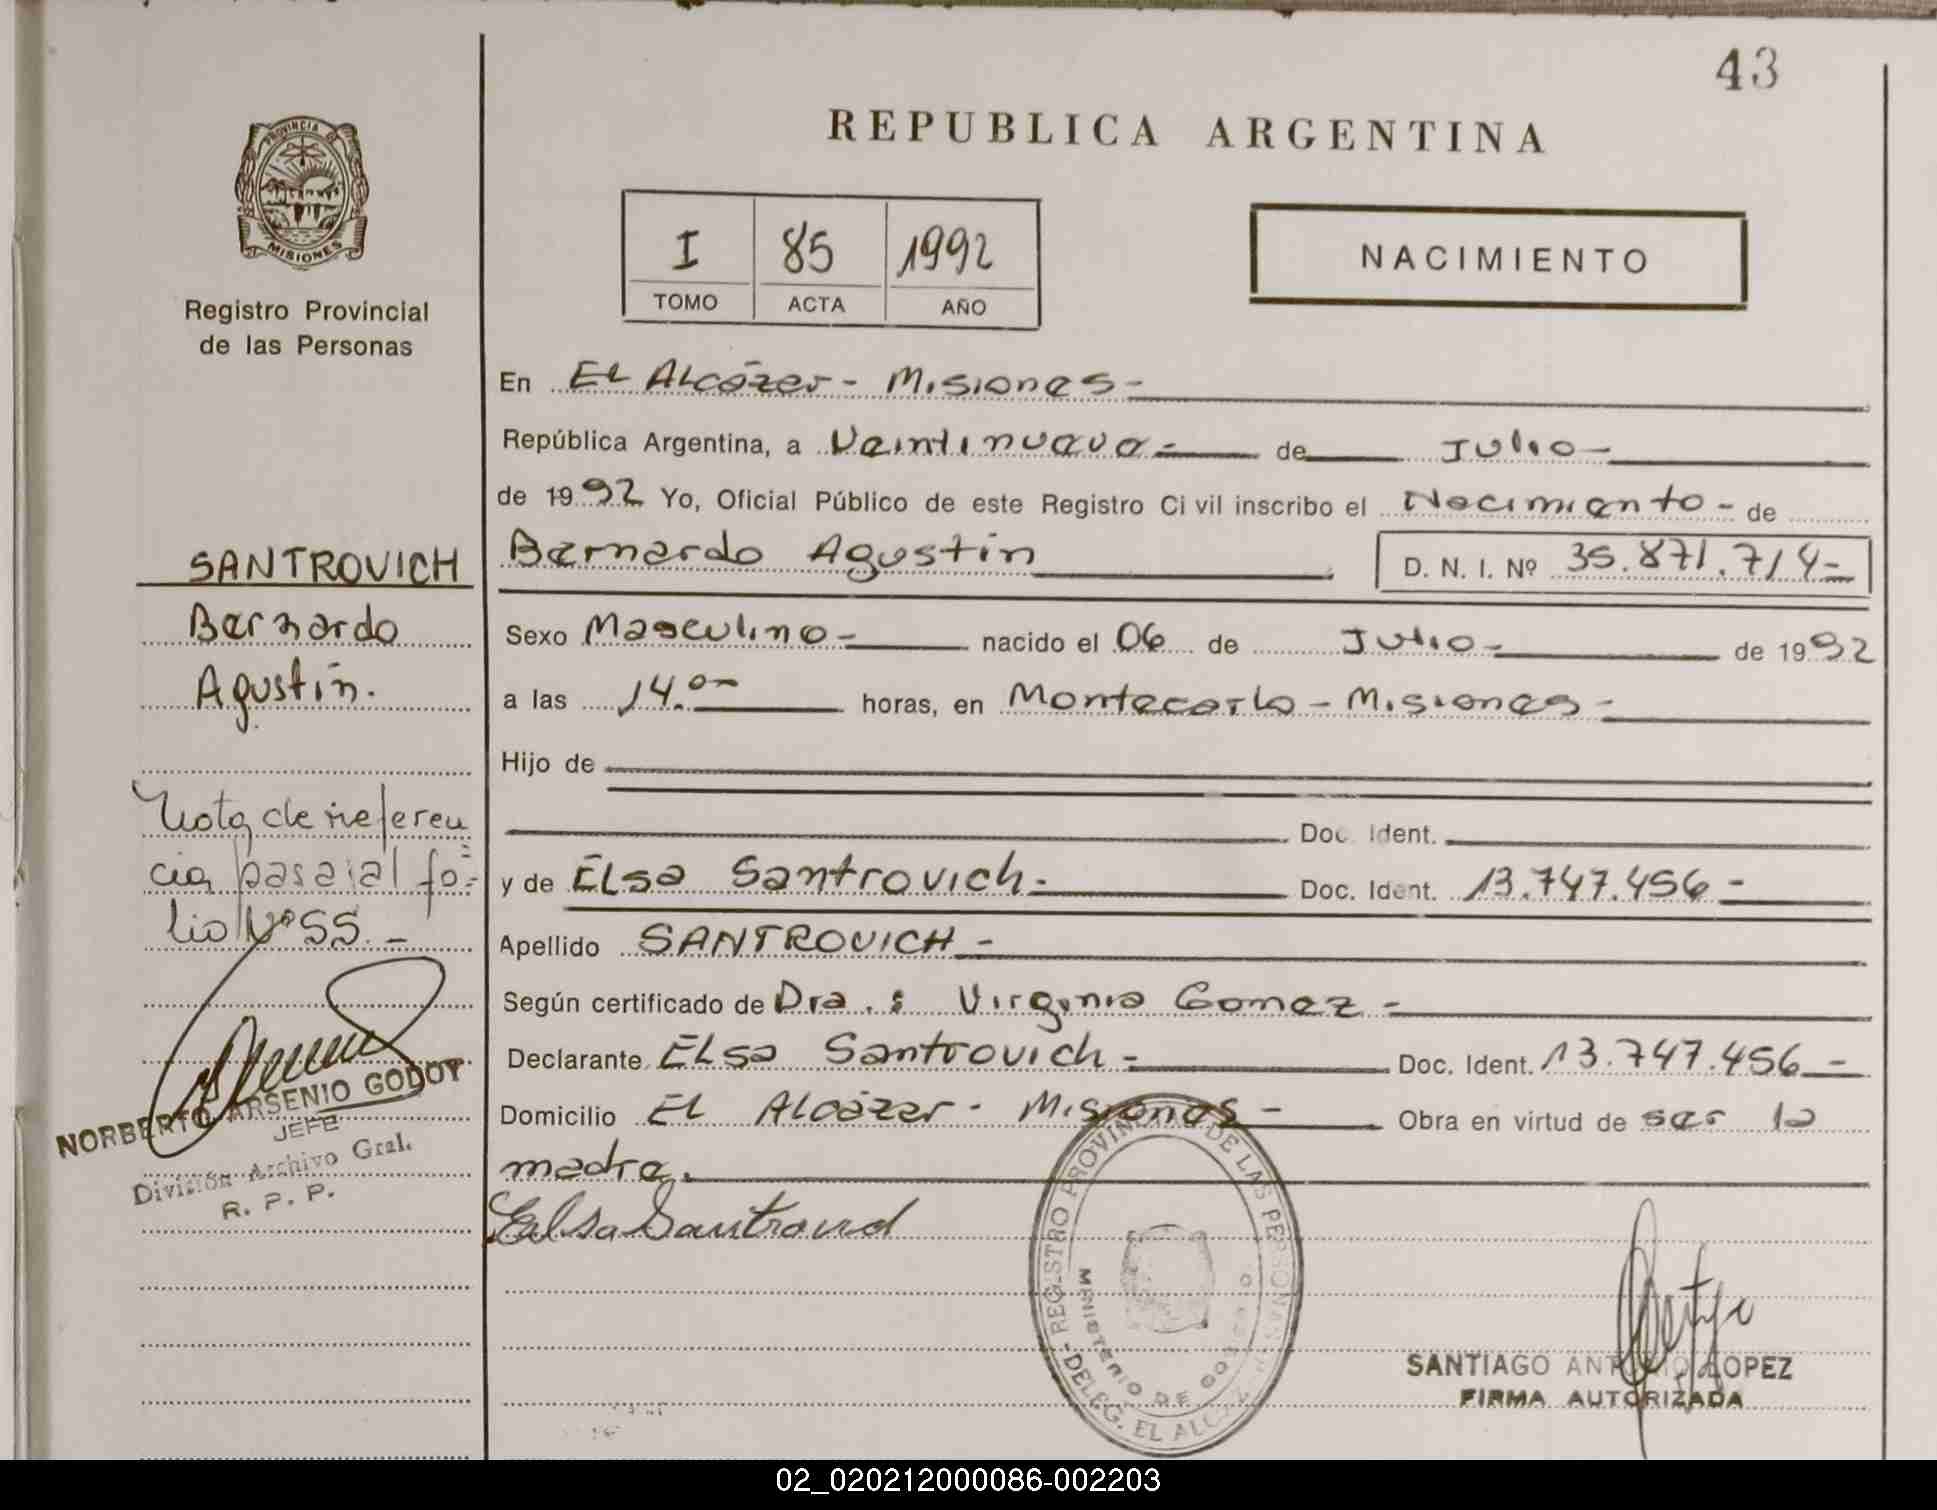 43
REPUBLICA ARGENTINA
PROVINCIA
MISIONES
Registro Provincial
de las Personas
I 85 1992
TOMO ACTA AÑO
NACIMIENTO
En El Alcázar - Misiones -
República Argentina, a Veintinueve - de Julio -
de 1992 Yo, Oficial Público de este Registro Civil inscribo el Nacimiento - de
Bernardo Agustín D. N. I. Nº 35.871.714 -
Sexo Masculino - nacido el 06 de Julio - de 1992
a las 14.00 horas, en Montecarlo - Misiones -
Hijo de
Doc. Ident.
y de Elsa Santrovich - Doc. Ident. 13.747.456 -
Apellido SANTROVICH -
Según certificado de Dra. : Virginia Gomez -
Declarante Elsa Santrovich - Doc. Ident. 13.747.456 -
Domicilio El Alcázar - Misiones - Obra en virtud de ser la
madre.
Elsa Santrovich
SANTROVICH
Bernardo
Agustín.
Nota de referen
cia pasa al fo-
lio Nº 55. -
NORBERTO ARSENIO GODOY
JEFE
División Archivo Gral.
R. P. P.
REGISTRO PROVINCIAL DE LAS PERSONAS
MINISTERIO DE GOBIERNO
DELEG. EL ALCAZAR
SANTIAGO ANTONIO LOPEZ
FIRMA AUTORIZADA
02_020212000086-002203